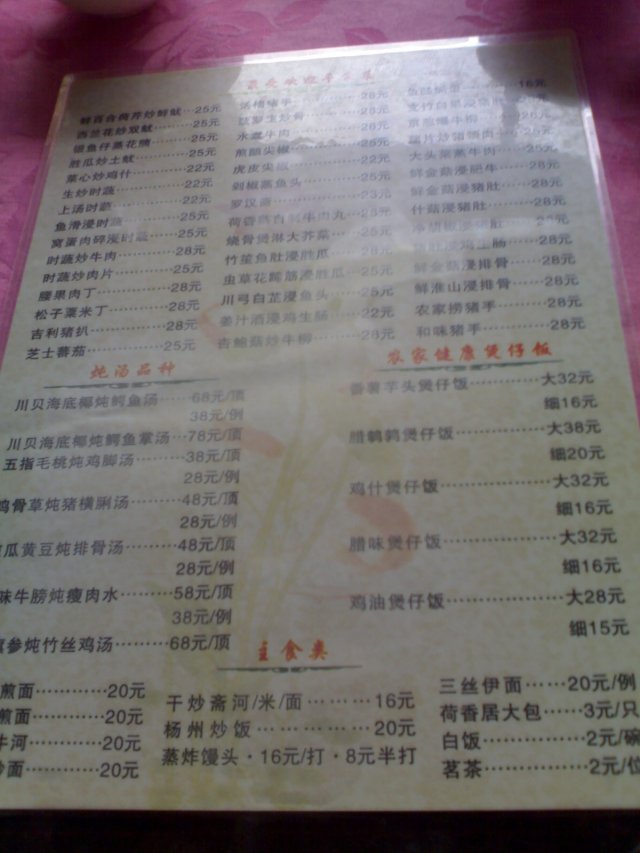 鲜百合荷芹炒鲜鱿……25元
西兰花炒双鱿……25元
银鱼仔蒸花腩……25元
胜瓜炒土鱿……25元
菜心炒鸡什……22元
生炒时蔬……22元
上汤时蔬……22元
鱼滑浸时蔬……25元
窝蛋肉碎浸时蔬……25元
时蔬炒牛肉……28元
时蔬炒肉片……25元
腰果肉丁……28元
松子粟米丁……28元
吉利猪扒……28元
芝士蕃茄……25元
猪手……28元
炒骨……28元
水煮牛肉……28元
煎酿尖椒……25元
虎皮尖椒……22元
剁椒蒸鱼头……25元
罗汉斋……23元
荷香蒸自制牛肉丸……28元
烧骨煲淋大芥菜……25元
竹笙鱼肚浸胜瓜……28元
虫草花龙筋浸胜瓜……25元
川弓白芷浸鱼头……25元
姜汁酒浸鸡生肠……22元
吉鲍菇炒牛柳……28元
16元
大头菜蒸牛肉……25元
鲜金菇浸肥牛……28元
鲜金菇浸猪肚……28元
什菇浸猪肚……28元
浸鸡生肠……28元
鲜金菇浸排骨……28元
鲜淮山浸排骨……28元
农家捞猪手……28元
和味猪手……28元
炖汤品种
川贝海底椰炖鳄鱼汤……68元/顶
38元/例
川贝海底椰炖鳄鱼掌汤……78元/顶
五指毛桃炖鸡脚汤……38元/顶
28元/例
鸡骨草炖猪横脷汤……48元/顶
28元/例
瓜黄豆炖排骨汤……48元/顶
28元/例
味牛膀炖瘦肉水……58元/顶
38元/例
参炖竹丝鸡汤……68元/顶
农家健康煲仔饭
番薯芋头煲仔饭……大32元
细16元
腊鹌鹑煲仔饭……大38元
细20元
鸡什煲仔饭……大32元
细16元
腊味煲仔饭……大32元
细16元
鸡油煲仔饭……大28元
细15元
主食类
煎面……20元
煎面……20元
牛河……20元
炒面……20元
干炒斋河/米/面………16元
杨州炒饭……………20元
蒸炸馒头·16元/打·8元半打
三丝伊面……20元/例
荷香居大包……3元/只
白饭……2元/碗
茗茶……2元/位